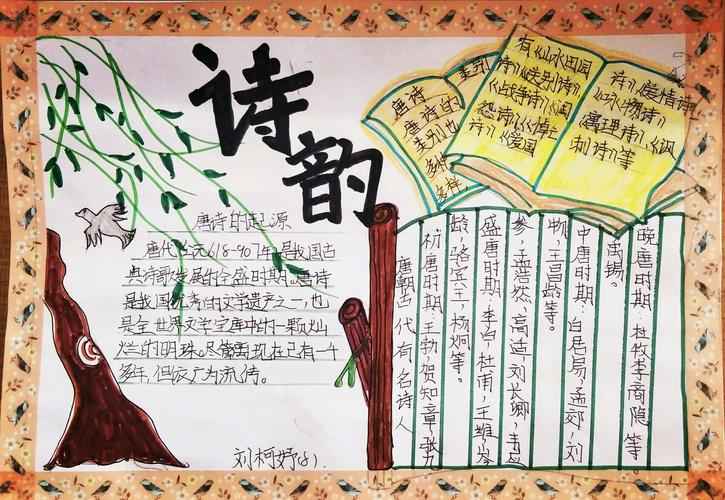 诗韵
唐诗的起源
唐代公元618-907年是我国古
典诗歌发展的全盛时期。唐诗
是我国优秀的文学遗产之一,也
是全世界文学宝库中的一颗灿
烂的明珠。尽管离现在已有一千
多年,但依广为流传。
刘柯妤
唐诗
唐诗的
类别也
多种
多样
类别
有《山水田园
诗》《送别诗》
《战争诗》《闺
怨诗》《悼亡
诗》《爱国
诗》《爱情诗》
《咏物诗》
寓理诗》《讽
刺诗》等
唐朝古代有名诗人
初唐时期:王勃,贺知章,张九
龄,骆宾王,杨炯等。
盛唐时期:李白,杜甫,王维,岑
参,孟浩然,高适,刘长卿,韦应
物,王昌龄等。
中唐时期:白居易,孟郊,刘
禹锡。
晚唐时期:杜牧李商隐等。